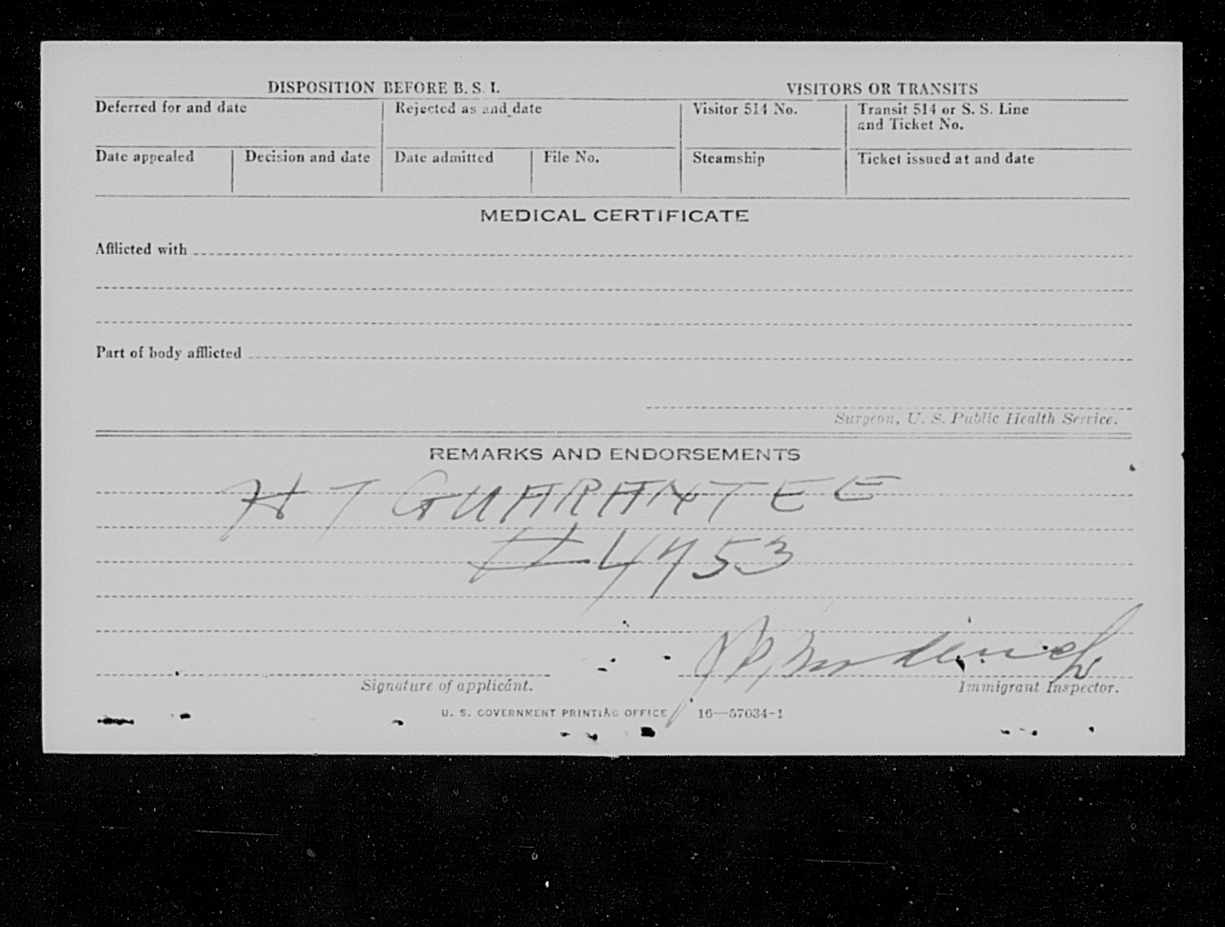 DISPOSITION BEFORE B. S. I.
VISITORS OR TRANSITS
Deferred for and date
Rejected as and date
Visitor 514 No.
Transit 514 or S. S. Line
and Ticket No.
Date appealed
Decision and date
Date admitted
File No.
Steamship
Ticket issued at and date
MEDICAL CERTIFICATE
Afflicted with
Part of body afflicted
Surgeon, U. S. Public Health Service.
REMARKS AND ENDORSEMENTS
HT GUARANTEE
#4453
Signature of applicant.
Immigrant Inspector.
U. S. GOVERNMENT PRINTING OFFICE 16—57034-1